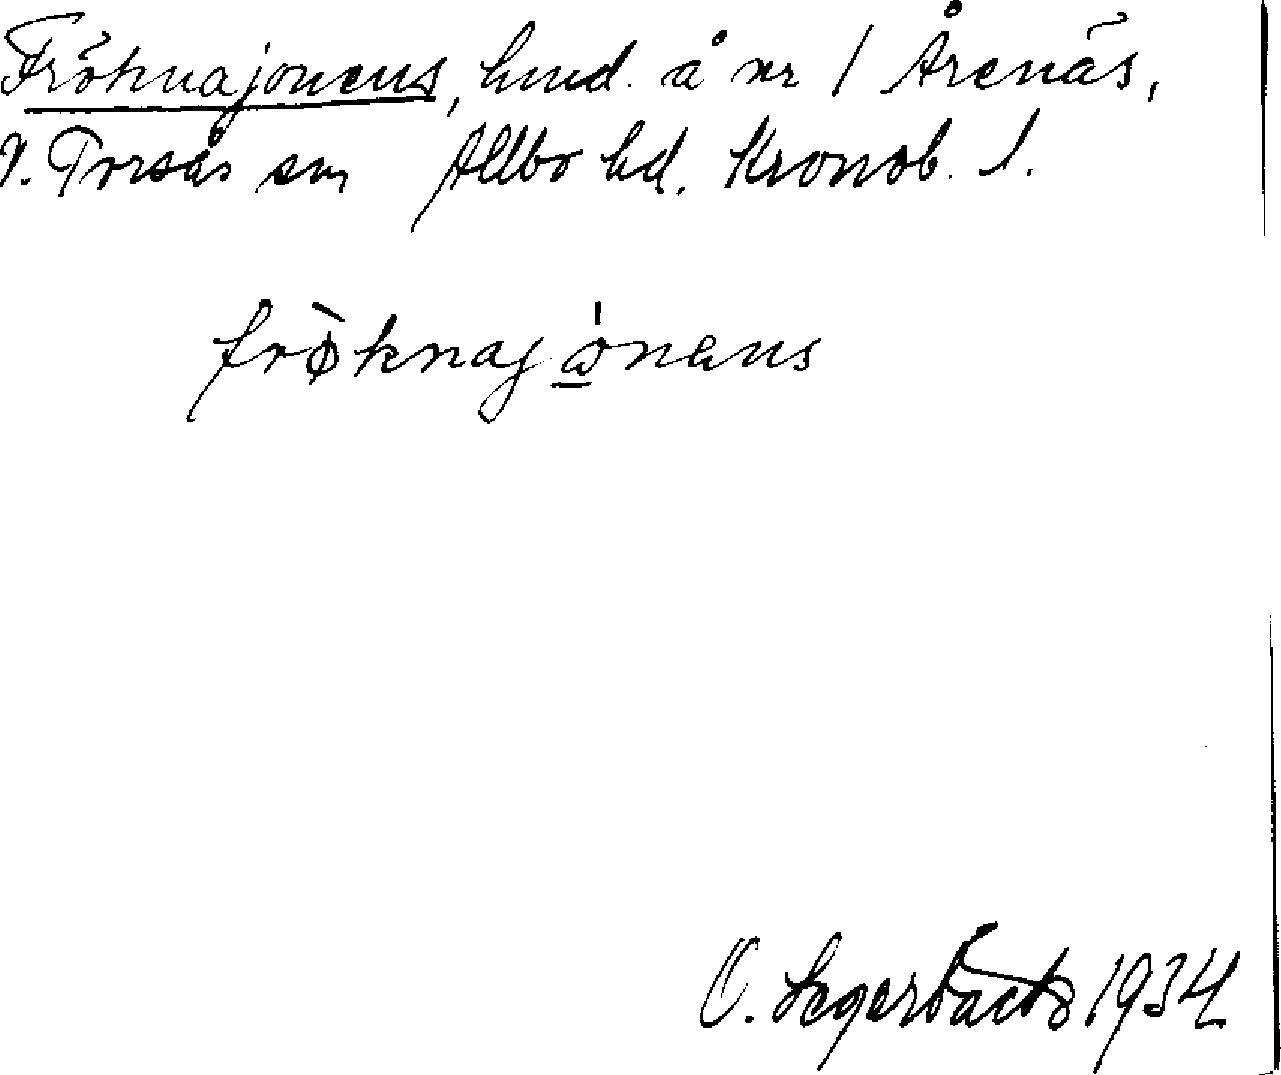 Fröknajonens, hmd. å nr 1 Årenäs,
V. Torsås sn Allbo hd. Kronob. l.
frökna​jónens
O. Segerbäck 1934